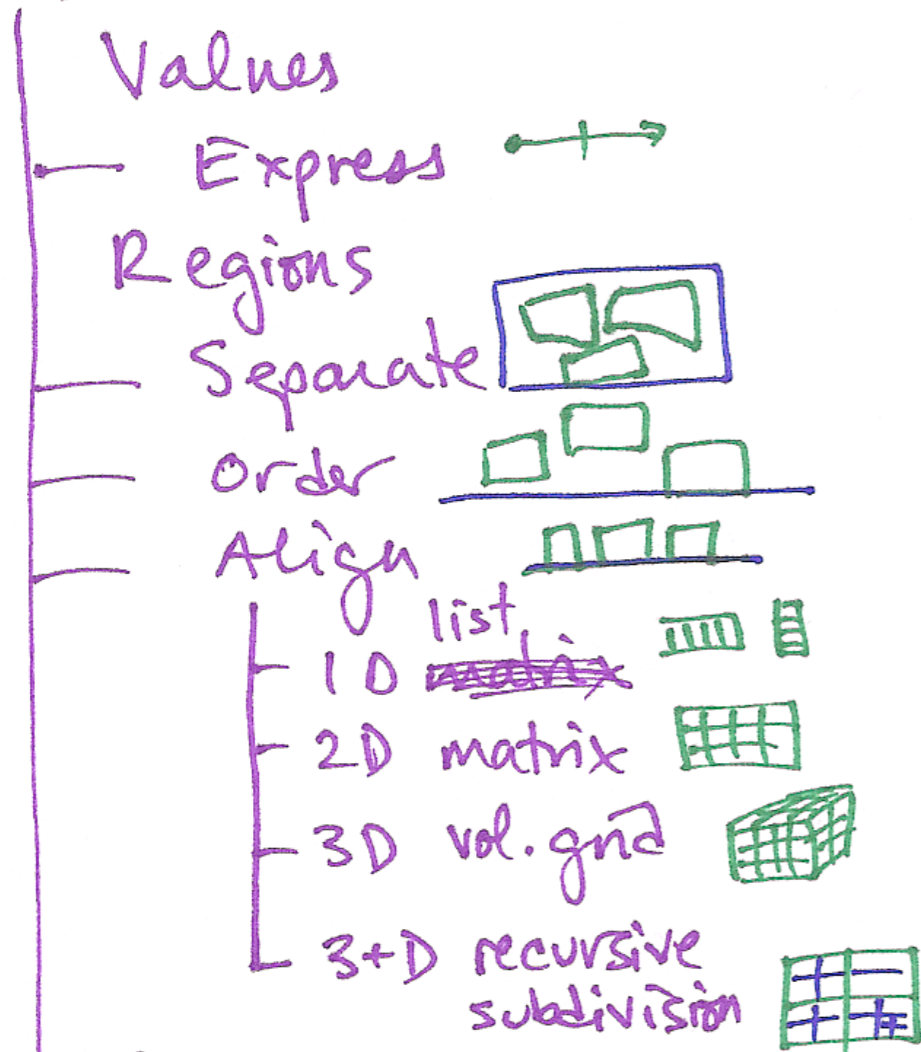 Values
Express
Regions
Separate
Order
Align
list
1D matrix
2D matrix
3D vol. grid
3+D recursive
subdivision